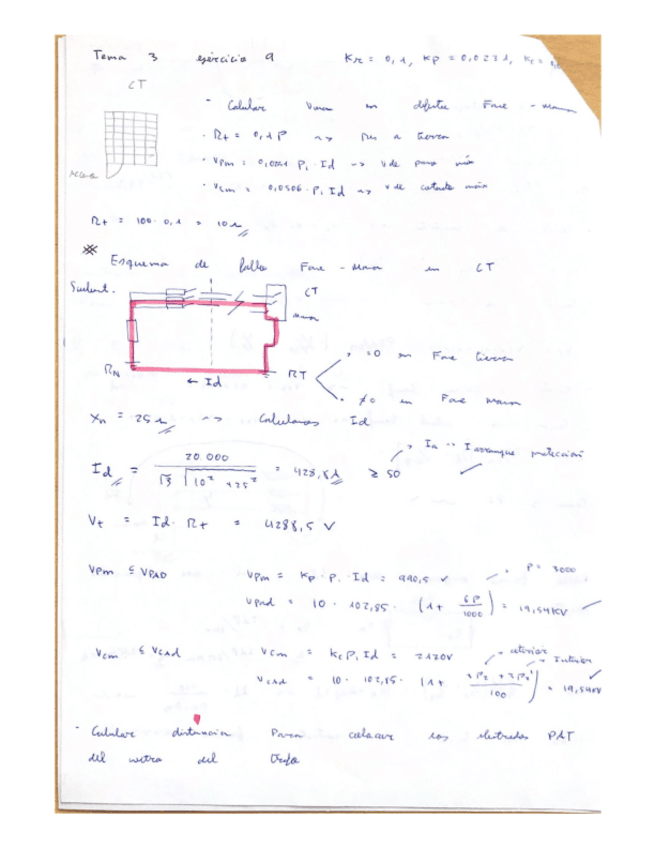 Tema 3 ejercicio 9 Kr = 0,1, Kp = 0,0231, Kc =
CT
- Calcular Vmax en defecto Fase - masa
Acera
· Rt = 0,1 P ~> Res a tierra
· Vpm = 0,0231 P. Id ~> V de paso máx
· Vcm = 0,0506 · P. Id ~> V de contacto máx
Rt = 100 · 0,1 = 10 Ω
* Esquema de fallo Fase - Masa en CT
Subest. CT
masa
RN ← Id RT
· =0 en Fase tierra
· ≠0 en Fase masa
Xn = 25 Ω ~> Calculamos Id
Id = 20.000 / √3 √10² + 25² = 428,8 A ≥ 50 ✓
→ Ia -- I arranque protección
Vt = Id · Rt = 4288,5 V
Vpm ≤ VPAD Vpm = Kp · P. · Id = 990,5 V P = 3000
Vpad = 10 · 102,85 · (1 + 6P/1000) = 19,54 KV ✓
Vcm ≤ Vcad Vcm = Kc P. Id = 2120V exterior Interior
Vcad = 10 · 102,85 · (1 + = 19,54KV
- Calcular distancia Para colocar los electrodos PAT
del neutro del trafo